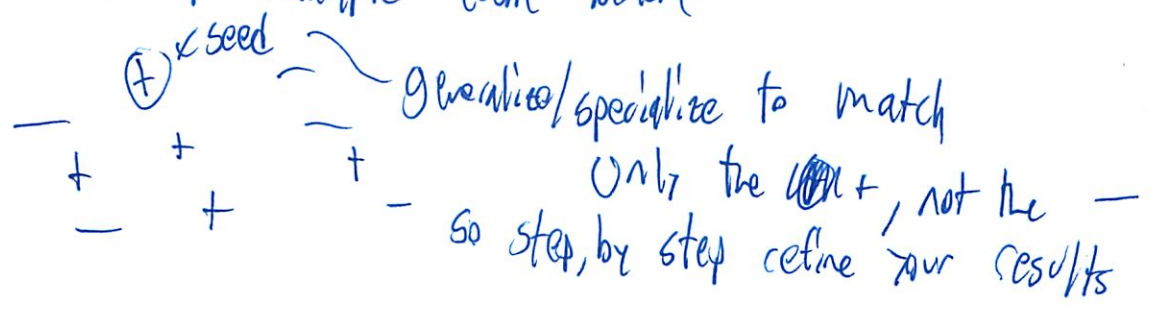 + seed
generalize/specialize to match
only the +, not the -
so step, by step refine your results